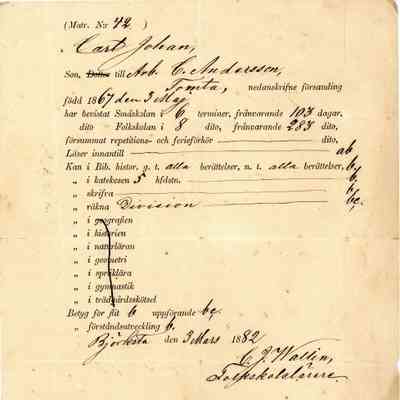 (Matr. N:r 42. )
Carl Johan,
Son, Dotter till Arb. C. Andersson,
Tomta, nedanskrifne församling
född 1867 den 3 Maj
har bevistat Småskolan i 6 terminer, frånvarande 103 dagar.
dito Folkskolan i 8 dito, frånvarande 283 dito,
försummat repetitions- och ferieförhör dito,
Läser innantill ab
Kan i Bib. histor. g. t. alla berättelser, n. t. alla berättelser, b,
„ i katekesen 5 hfdstn. b,
„ skrifva b,
„ räkna Division bc,
„ i geografien
„ i historien
„ i naturläran
„ i geometri
„ i språklära
„ i gymnastik
„ i trädgårdsskötsel
Betyg för flit b uppförande bc.
„ förståndsutveckling b.
Björksta den 3 Mars 1882
C. J. Wallin,
Folkskolelärare.